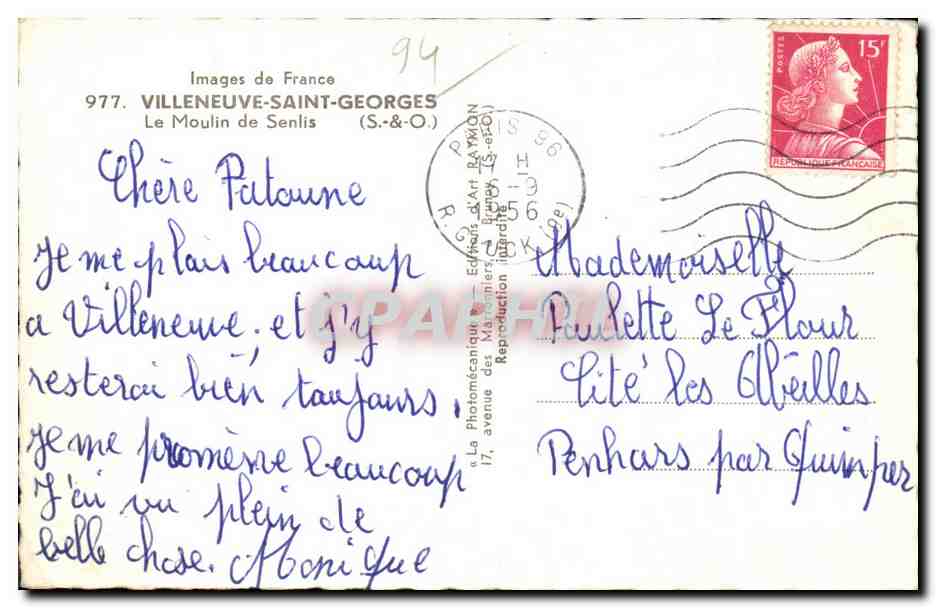 94
Images de France
977. VILLENEUVE-SAINT-GEORGES
Le Moulin de Senlis (S.-&-O.)
Chère Patoune
Je me plais beaucoup
a Villeneuve. et j'y
resterai bien toujours.
Je me promène beaucoup
J'ai vu plein de
belle chose. Monique
« La Photomécanique » - Editions d'Art RAYMON
17, avenue des Marronniers, Brunoy (S.-et-O.)
Reproduction interdite
PARIS 96
17 H
6 - 9
1956
R. GLUCK (9e)
POSTES
15F
REPUBLIQUE FRANÇAISE
Mademoiselle
Paulette Le Flour
Cité les Abeilles
Penhars par Quimper
CPARAMA